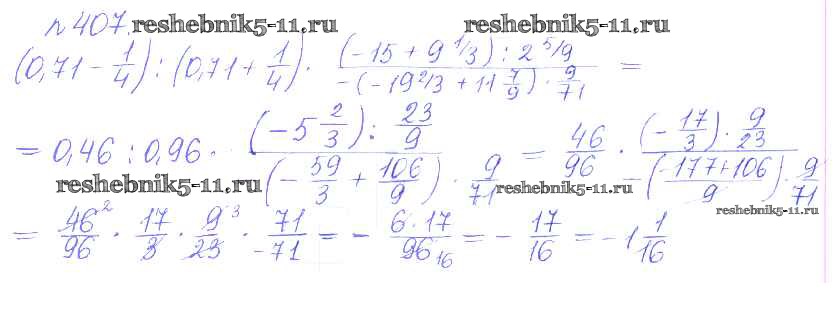 № 407. reshebnik5-11.ru reshebnik5-11.ru
(0,71 - 1/4) : (0,71 + 1/4) · ((-15 + 9 1/3) : 2 5/9)/(-(-19 2/3 + 11 7/9) · 9/71) =
= 0,46 : 0,96 · ((-5 2/3) : 23/9)/((-59/3 + 106/9) · 9/71) = 46/96 · ((-17/3) · 9/23)/(-(-177+106)/9 · 9/71)
reshebnik5-11.ru reshebnik5-11.ru
reshebnik5-11.ru
= 46 2/96 · 17/3 · 9 3/23 · 71/-71 = - 6·17/96 16 = - 17/16 = -1 1/16